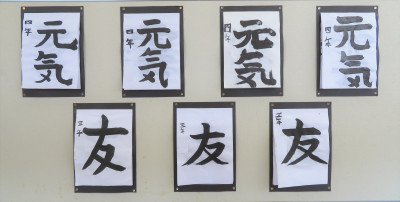 四年
元気
四年
元気
四年
元気
四年
元気
三年
友
三年
友
三年
友